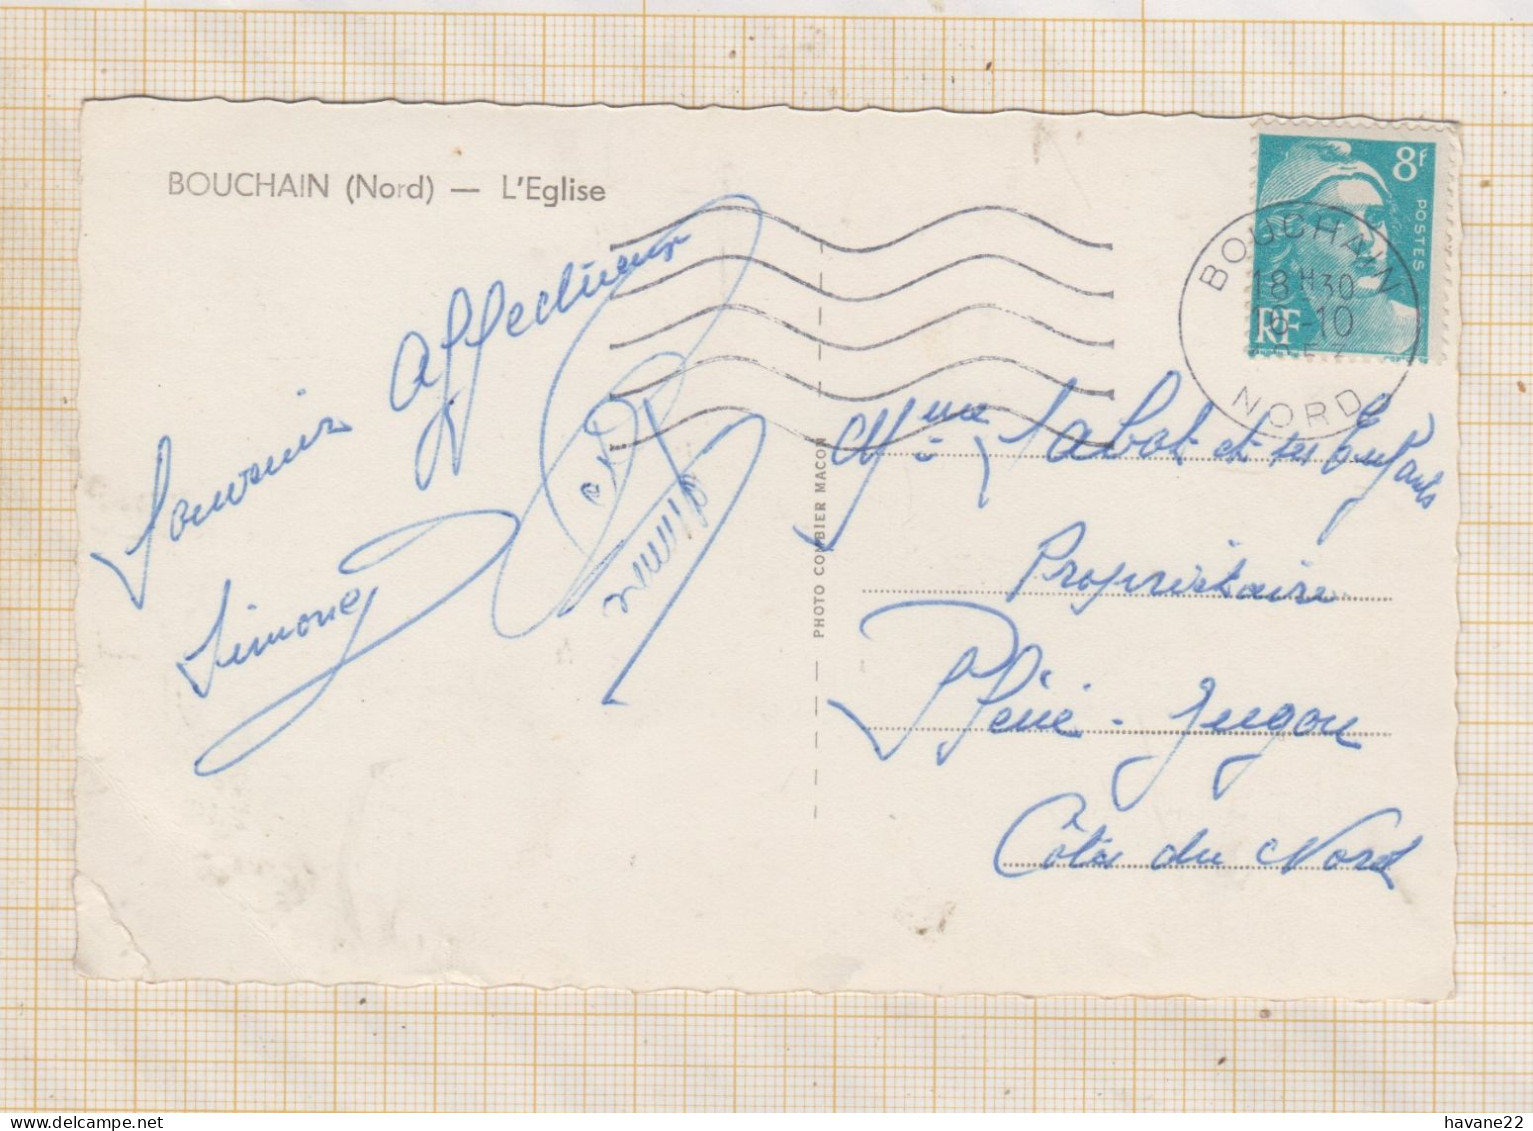 BOUCHAIN (Nord) — L'Eglise
Souvenir Affectueux
Simone
PHOTO COMBIER MACON
8F
POSTES
RF
BOUCHAIN
18H30
-10
NORD
Mme Rabot et ses Enfants
Propriétaire
Plénée-Jugon
Côtes du Nord
havane22